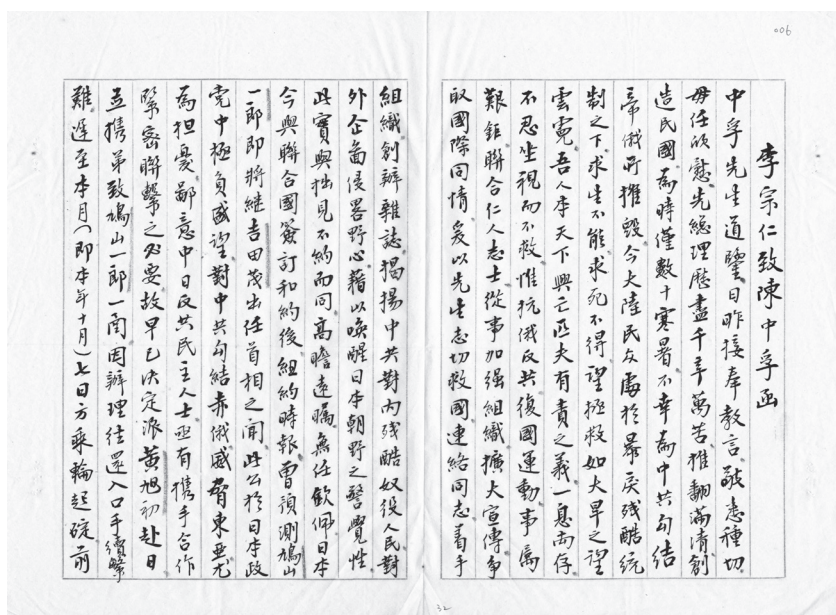 006
李宗仁致陳中孚函
中孚先生道鑒日昨接奉教言敬悉種切
毋任欣慰先總理歷盡千辛萬苦推翻滿清創
造民國為時僅數十寒暑不幸為中共勾結
帝俄所摧毀今大陸民眾處於暴戾殘酷統
制之下求生不能求死不得望拯救如大旱之望
雲霓吾人本天下興亡匹夫有責之義一息尚存
不忍坐視而不救惟抗俄反共復國運動事屬
艱鉅聯合仁人志士從事加强組織擴大宣傳爭
取國際同情爰以先生志切救國連絡同志着手
組織創辦雜誌揭揚中共對內殘酷奴役人民對
外企圖侵畧野心藉以喚醒日本朝野之警覺性
此實與拙見不約而同高瞻遠矚無任欽佩日本
今與聯合國簽訂和約後紐約時報曾預測鳩山
一郎即將繼吉田茂出任首相之聞此公於日本政
党中極負威望對中共勾結赤俄威脅東亞尤
為担憂鄙意中日反共民主人士亟有携手合作
緊密聯繫之必要故早已決定派黃旭初赴日
並携弟致鳩山一郎一函因辦理往還入口手續繁
難遲至本月（即本年十月）七日方乘輪起碇前
32